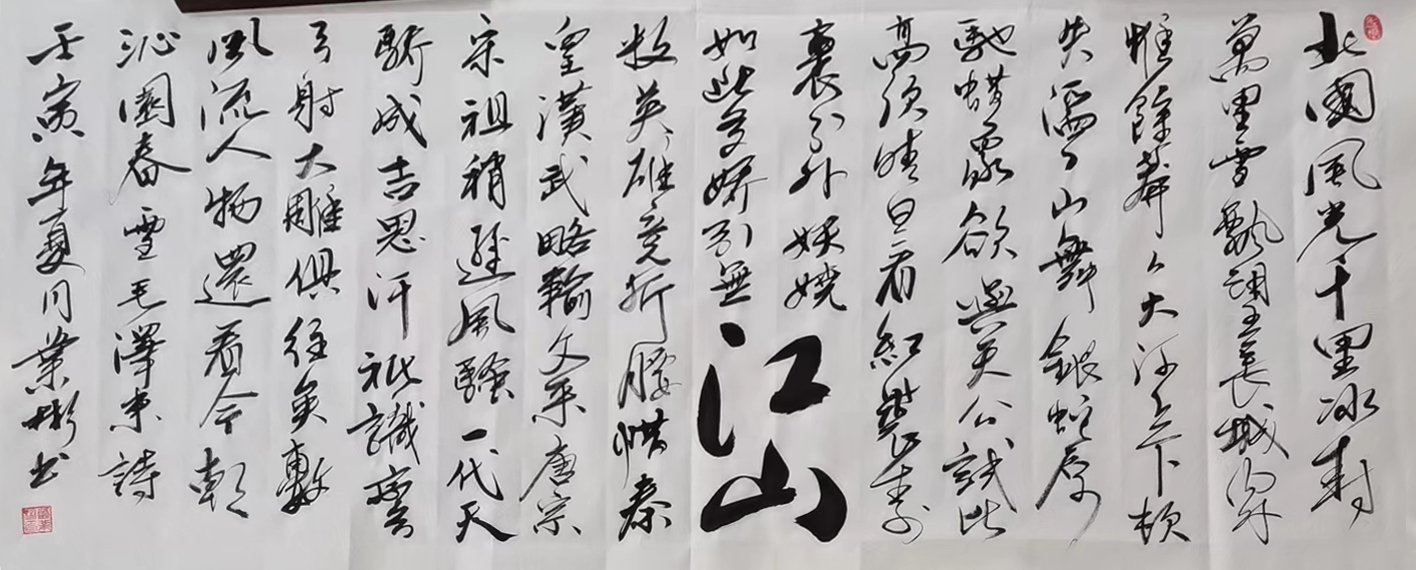 北國風光千里冰封
萬里雪飄望長城內外
惟餘莽々大河上下頓
失滔々山舞銀蛇原
馳蠟象欲與天公試比
高須晴日看紅裝素
裹分外妖嬈
江山
如此多嬌引無
數英雄競折腰惜秦
皇漢武略輸文采唐宗
宋祖稍遜風騷一代天
驕成吉思汗祇識彎
弓射大雕俱往矣數
風流人物還看今朝
沁園春雪毛澤東詩
壬寅年夏業彬书